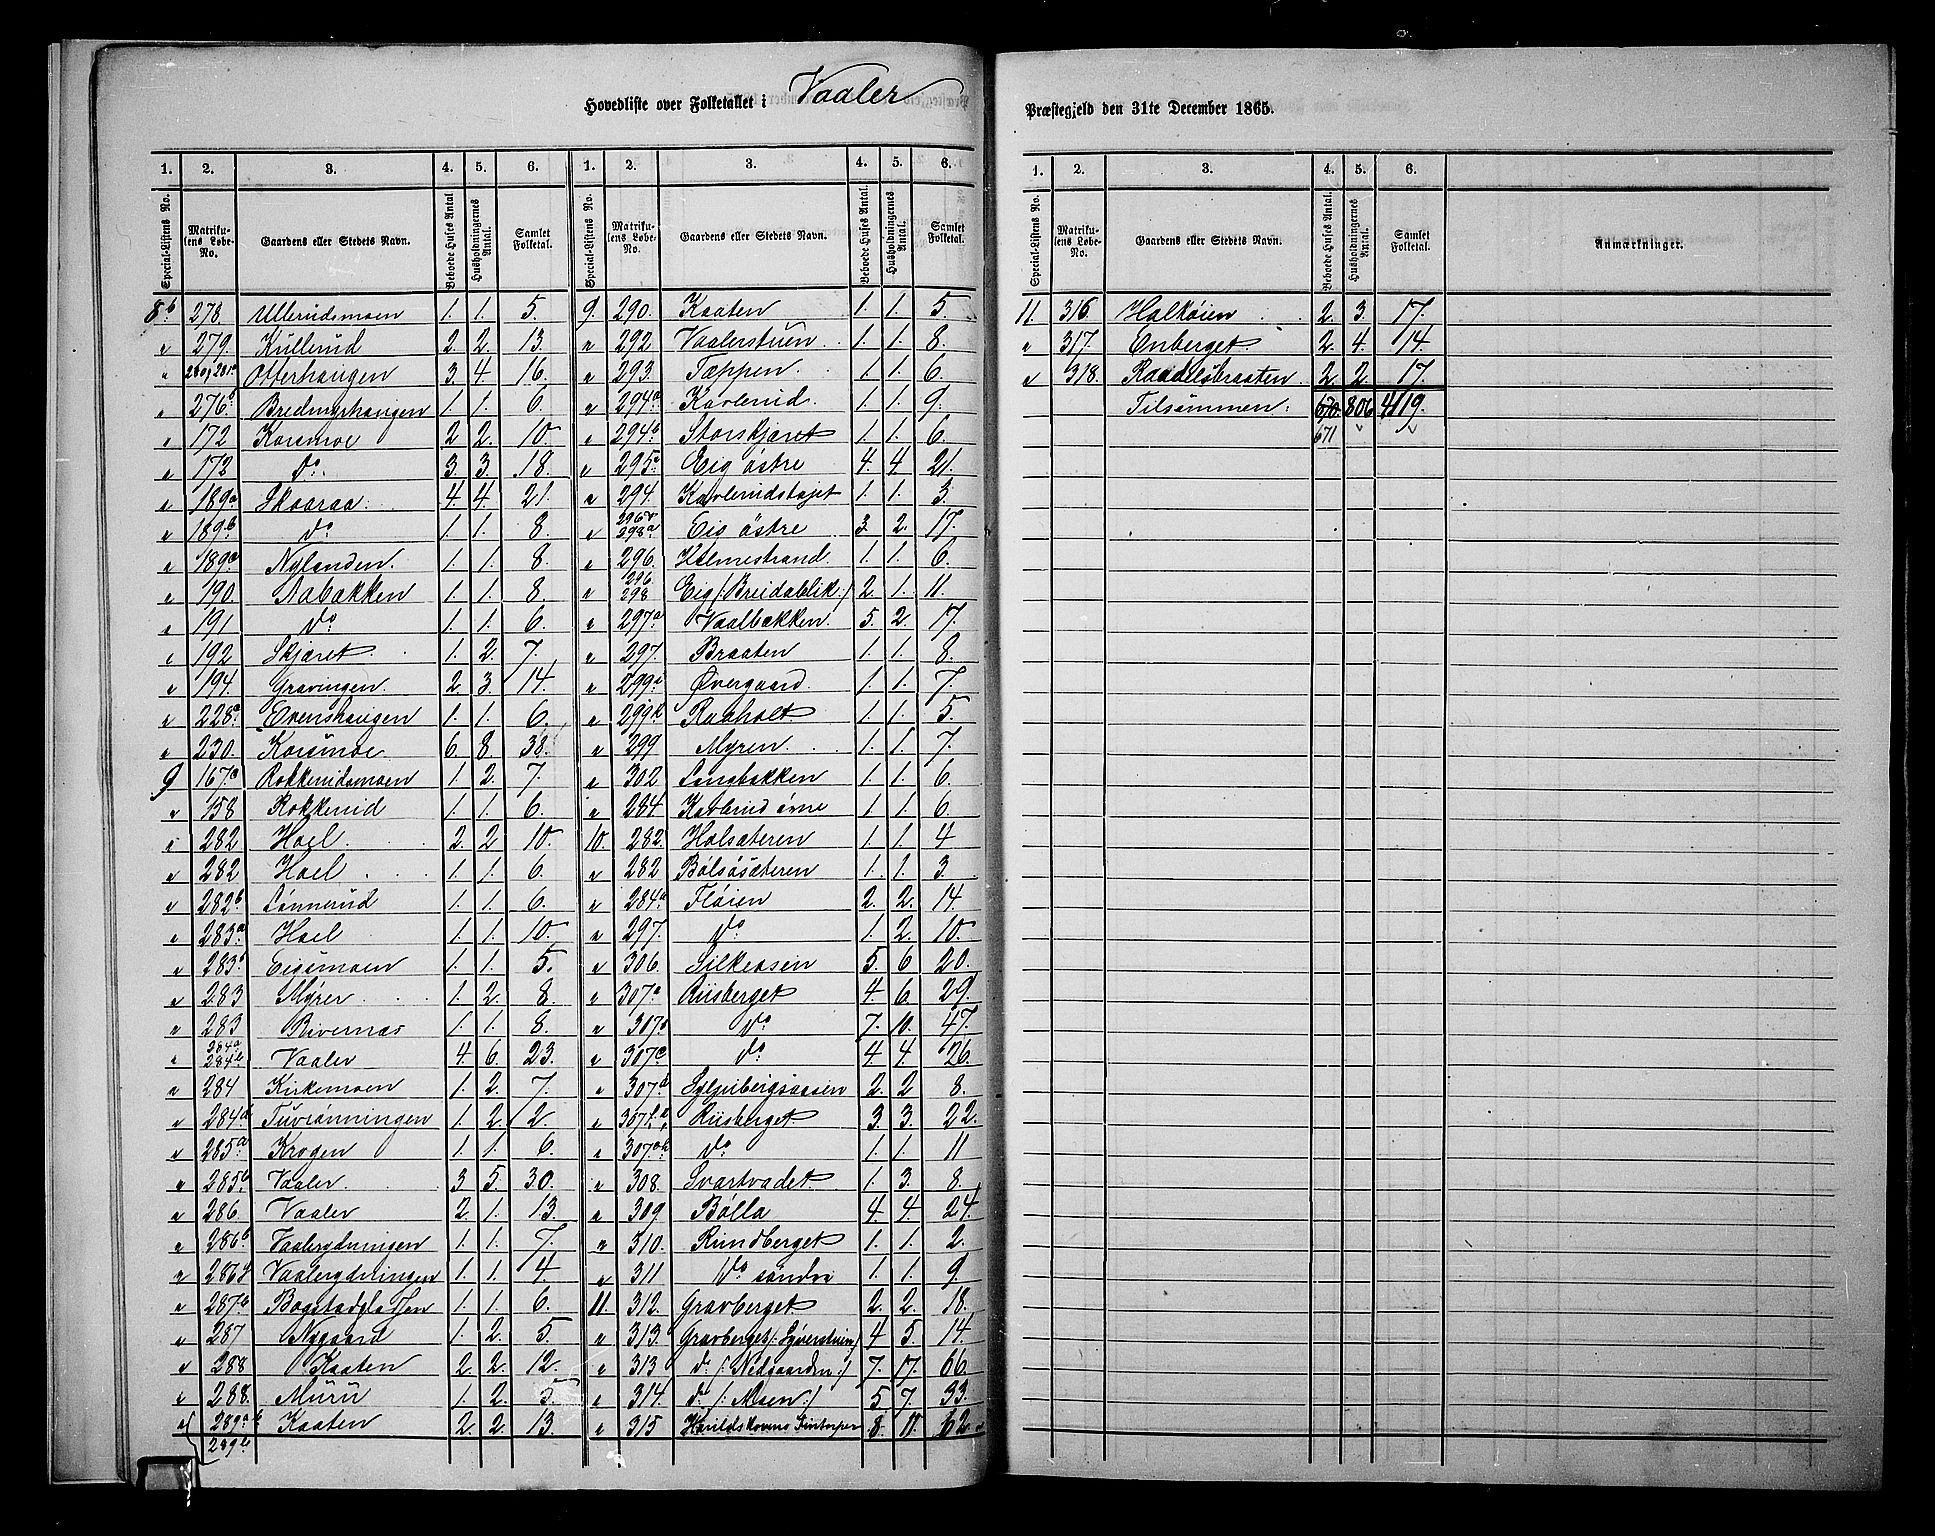 Hovedliste over Folketallet i Vaaler
Præstegjeld den 31te December 1865.
1. 2. 3. 4. 5. 6. 1. 2. 3. 4. 5. 6.
Special-Listens No. Matrikulens Løbe-No. Gaardens eller Stedets Navn. Beboede Huses Antal Husholdningernes Antal. Samlet Folketal. Special-Listens No. Matrikulens Løbe-No. Gaardens eller Stedets Navn. Beboede Huses Antal. Husholdningernes Antal. Samlet Folketal.
8b. 278. Ullerudsmoen 1. 1. 5.
" 279. Kullerud 2. 2. 13.
" 280, 281a Otterhaugen 3. 4. 16.
" 276b Bredingshaugen 1. 1. 6.
" 172 Korsmoe 2. 2. 10.
" 173 do. 3. 3. 18.
" 189a Skaaraa. 4. 4. 21.
" 189b do 1. 1. 8.
" 189a Nylenden. 1. 1. 8.
" 190. Aabakken 1. 1. 8.
" 191 do 1. 1. 6.
" 192 Skjæret. 1. 2. 7.
" 194. Gravingen. 2. 3. 14.
" 228a Evenshaugen 1. 1. 6.
" 230. Korsmoe 6. 8. 38.
9 167c Rokkerudsmoen 1. 2. 7.
" 158 Rokkerud 1. 1. 6.
" 282 Hoel. 2. 2 10.
" 282 Hoel. 1. 1. 6.
" 282b Lønnerud 1. 1. 6.
" 283a Hoel 1. 1. 10.
" 283b Eigsmoen 1. 1. 5.
" 283 Myrer 1. 2. 8.
" 283 Bivernæs 1. 1. 8.
" 284a 284b Vaaler 4. 6. 23.
" 284 Kirkemoen 1. 2. 7.
" 284d Furrønningen 1. 2. 2.
" 285a Krogen 1. 1. 6.
" 285b Vaaler. 3 5. 30.
" 286 Vaaler 2. 1. 13.
" 286b Vaalerydningen 1. 1. 7.
" 286 Vaalerydningen 1. 1. 4.
" 287b Bogstadpladsen 1. 1. 6.
" 287 Nygaard 1. 2. 5.
" 288 Kaaten 2. 2. 12.
" 288. Muru 1. 2. 5.
" 289a 289b Kaaten 2. 2. 13.
9. 290. Kaaten 1. 1. 5.
" 292. Vaalerstuen 1. 1. 8.
" 293. Tæppen. 1. 1. 6.
" 294a Kavlerud. 1. 1. 9.
" 294b Storskjæret 1. 1. 6.
" 295a Eig østre 4. 4 21.
" 294. Kavlerudstøjet 1. 1. 3.
" 296 298a Eig østre 3. 2. 17.
" 296. Holmestrand 1. 1. 6.
" 296 298 Eig /: Breidablik :/ 2. 1. 11.
" 297a Vaalbakken. 5. 2. 17.
" 297. Braaten 1. 1. 8.
" 299a Øvergaard. 1. 1. 7.
" 299b Raaholt 1. 1. 5.
" 299 Myren. 1. 1. 7.
" 302 Langbakken 1. 1. 6.
" 284 Kavlerud øvre 1. 1. 6.
10. 282. Holsæteren 1. 1. 4
" 282 Bølsøsæteren 1. 1. 3.
" 284a Fløien 2. 2. 14.
" 297. do 1. 2. 10.
" 306. Silkeosen 5. 6 20.
" 307a Riisberget 4. 6. 29.
" 307b do 7. 10. 47.
" 307c do 4. 4. 26.
" 307d 2. 2 8.
" Riisberget 3. 3. 22.
" 307ab do 1. 1. 11
" 308. Svartvadet. 1. 3. 8.
" 309 Bølla 4. 4. 24.
" 310. Rundberget 1. 1. 2.
" 311 do søndre 1. 1. 9.
11. 312. Gravberget 2. 2. 18.
" 313. Gravberget /: Syverstuen :/ 4 5. 14.
" 313 do /: Nedgaarden :/ 7. 17. 66.
" 314. do /: Moen :/ 5 7. 33.
" 315 Kårildskovens Fintorper 8. 11. 62.
1. 2. 3. 4. 5. 6.
Special-Listens No. Matrikulens Løbe-No. Gaardens eller Stedets Navn. Beboede Huses Antal. Husholdningernes Antal. Samlet Folketal. Anmærkninger.
11. 316. Halkøien 2. 3. 17.
" 317. Enberget. 2. 4. 14.
" 318. Raadelsbraaten 2. 2. 17.
Tilsammen. 670. 806 4119.
671